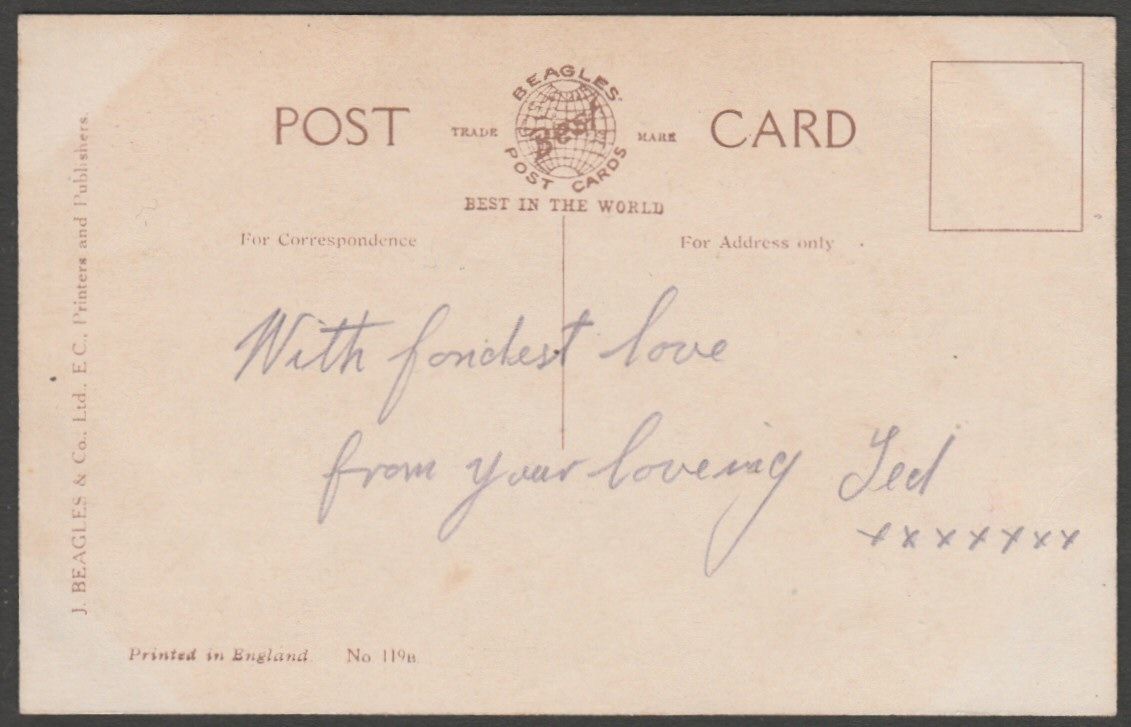 BEAGLES'
POST TRADE Best MARK CARD
POST CARDS
BEST IN THE WORLD
For Correspondence For Address only
With fondest love
from your loveing Ted
xxxxxxx
J. BEAGLES & Co., Ltd., E.C., Printers and Publishers.
Printed in England. No 119B.